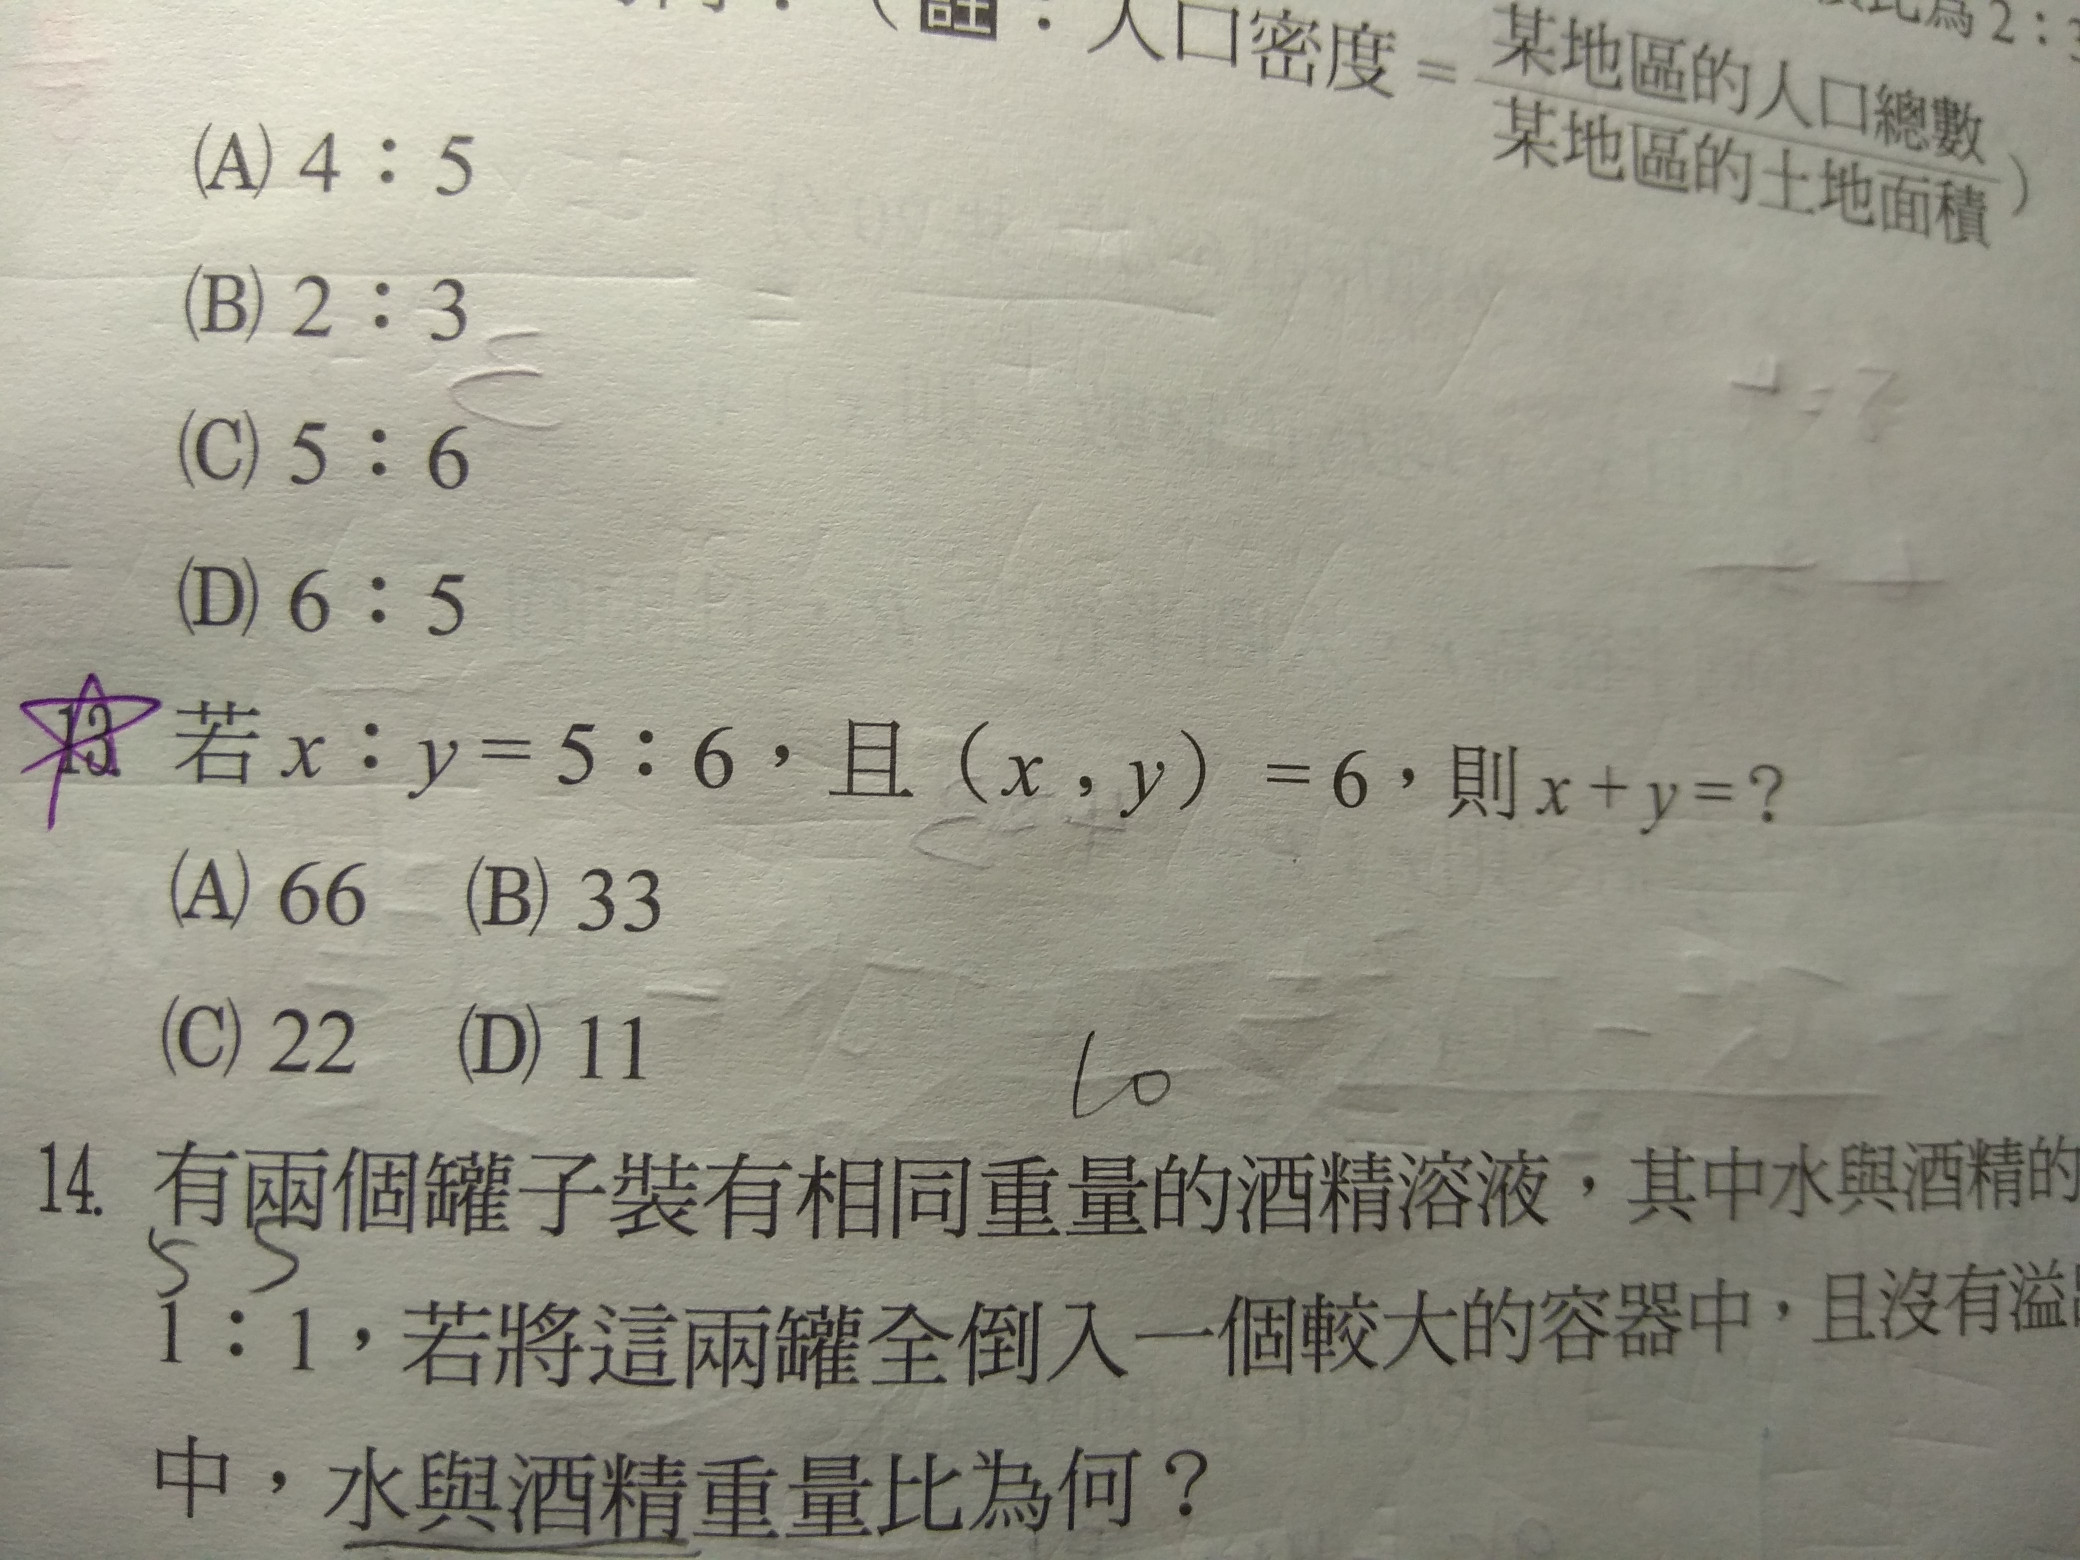 比為2：3
（註：人口密度＝某地區的人口總數
某地區的土地面積）
(A) 4：5
(B) 2：3
(C) 5：6
(D) 6：5
13. 若x：y＝5：6，且（x，y）＝6，則x＋y＝？
(A) 66 (B) 33
(C) 22 (D) 11
10
14. 有兩個罐子裝有相同重量的酒精溶液，其中水與酒精的
5 5
1：1，若將這兩罐全倒入一個較大的容器中，且沒有溢
中，水與酒精重量比為何？